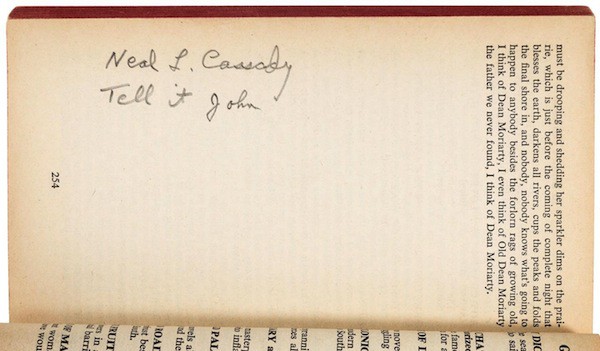 Neal L. Cassady
Tell it John
must be drooping and shedding her sparkler dims on the prai-
rie, which is just before the coming of complete night that
blesses the earth, darkens all rivers, cups the peaks and folds
the final shore in, and nobody, nobody knows what's going to
happen to anybody besides the forlorn rags of growing old,
I think of Dean Moriarty, I even think of Old Dean Moriarty
the father we never found, I think of Dean Moriarty.
254